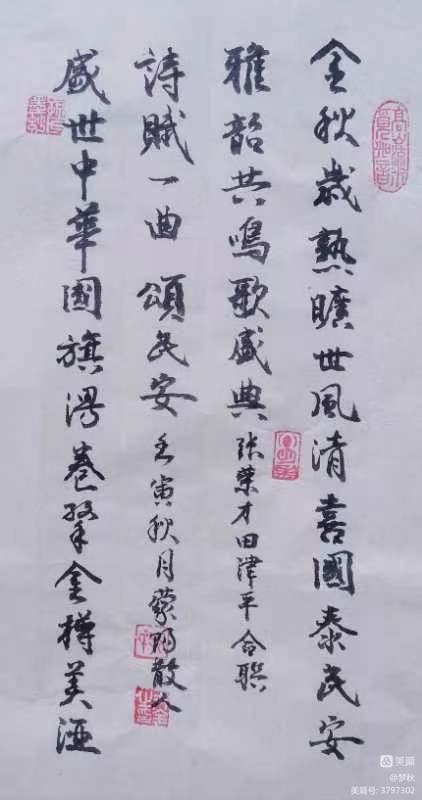 金秋歲熟曠世風清喜國泰民安
雅韶共鳴歌盛典
张荣才田津平合联
盛世中華國旗漫卷擎金樽美酒
詩賦一曲頌民安
壬寅秋月蒙阳散人
美篇
@梦秋
美篇号: 3797302